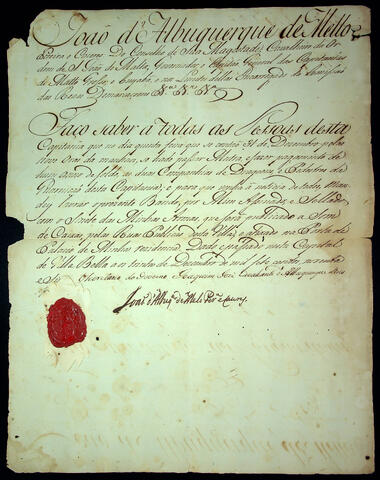 João d'Albuquerque de Mello
Pereira e Caceres, Do Conselho de Sua Magestade, Cavalleiro da Or
dem de S. João de Malta, Governador, e Capitão General das Capitanias
de Matto Grosso, e Cuyabá, e nos Lemites dellas Encarregado da Commissão
das Reaes Demarcaçoens
Faço saber a todas as Pessoas desta
Capitania que no dia quinta feira que se contão 31 de Dezembro, pelas
nove oras da manhan, se hade passar Mostra e fazer pagamento de
de as duas Companhias de Dragoens, e Pedestres da
Guarnição desta Capitania; e para que venha á noticia de todos, Man
dey lavrar o prezente Bando, por Mim Asignado, e Sellado
com o Sinete das Minhas Armas, que será publicado a Som
de Caixas, pelas Ruas Publicas desta Villa, e afixado na Porta do
Palacio da Minha rezidencia. Dado e passado nesta Capital
de Villa Bella a os trinta de Dezembro de mil sete centos, noventa
e O Secretario do Governo Joaquim José Cavalcanti d'Albuquerque Lins
João d'Albuq. de Mello Per.ª e Caceres